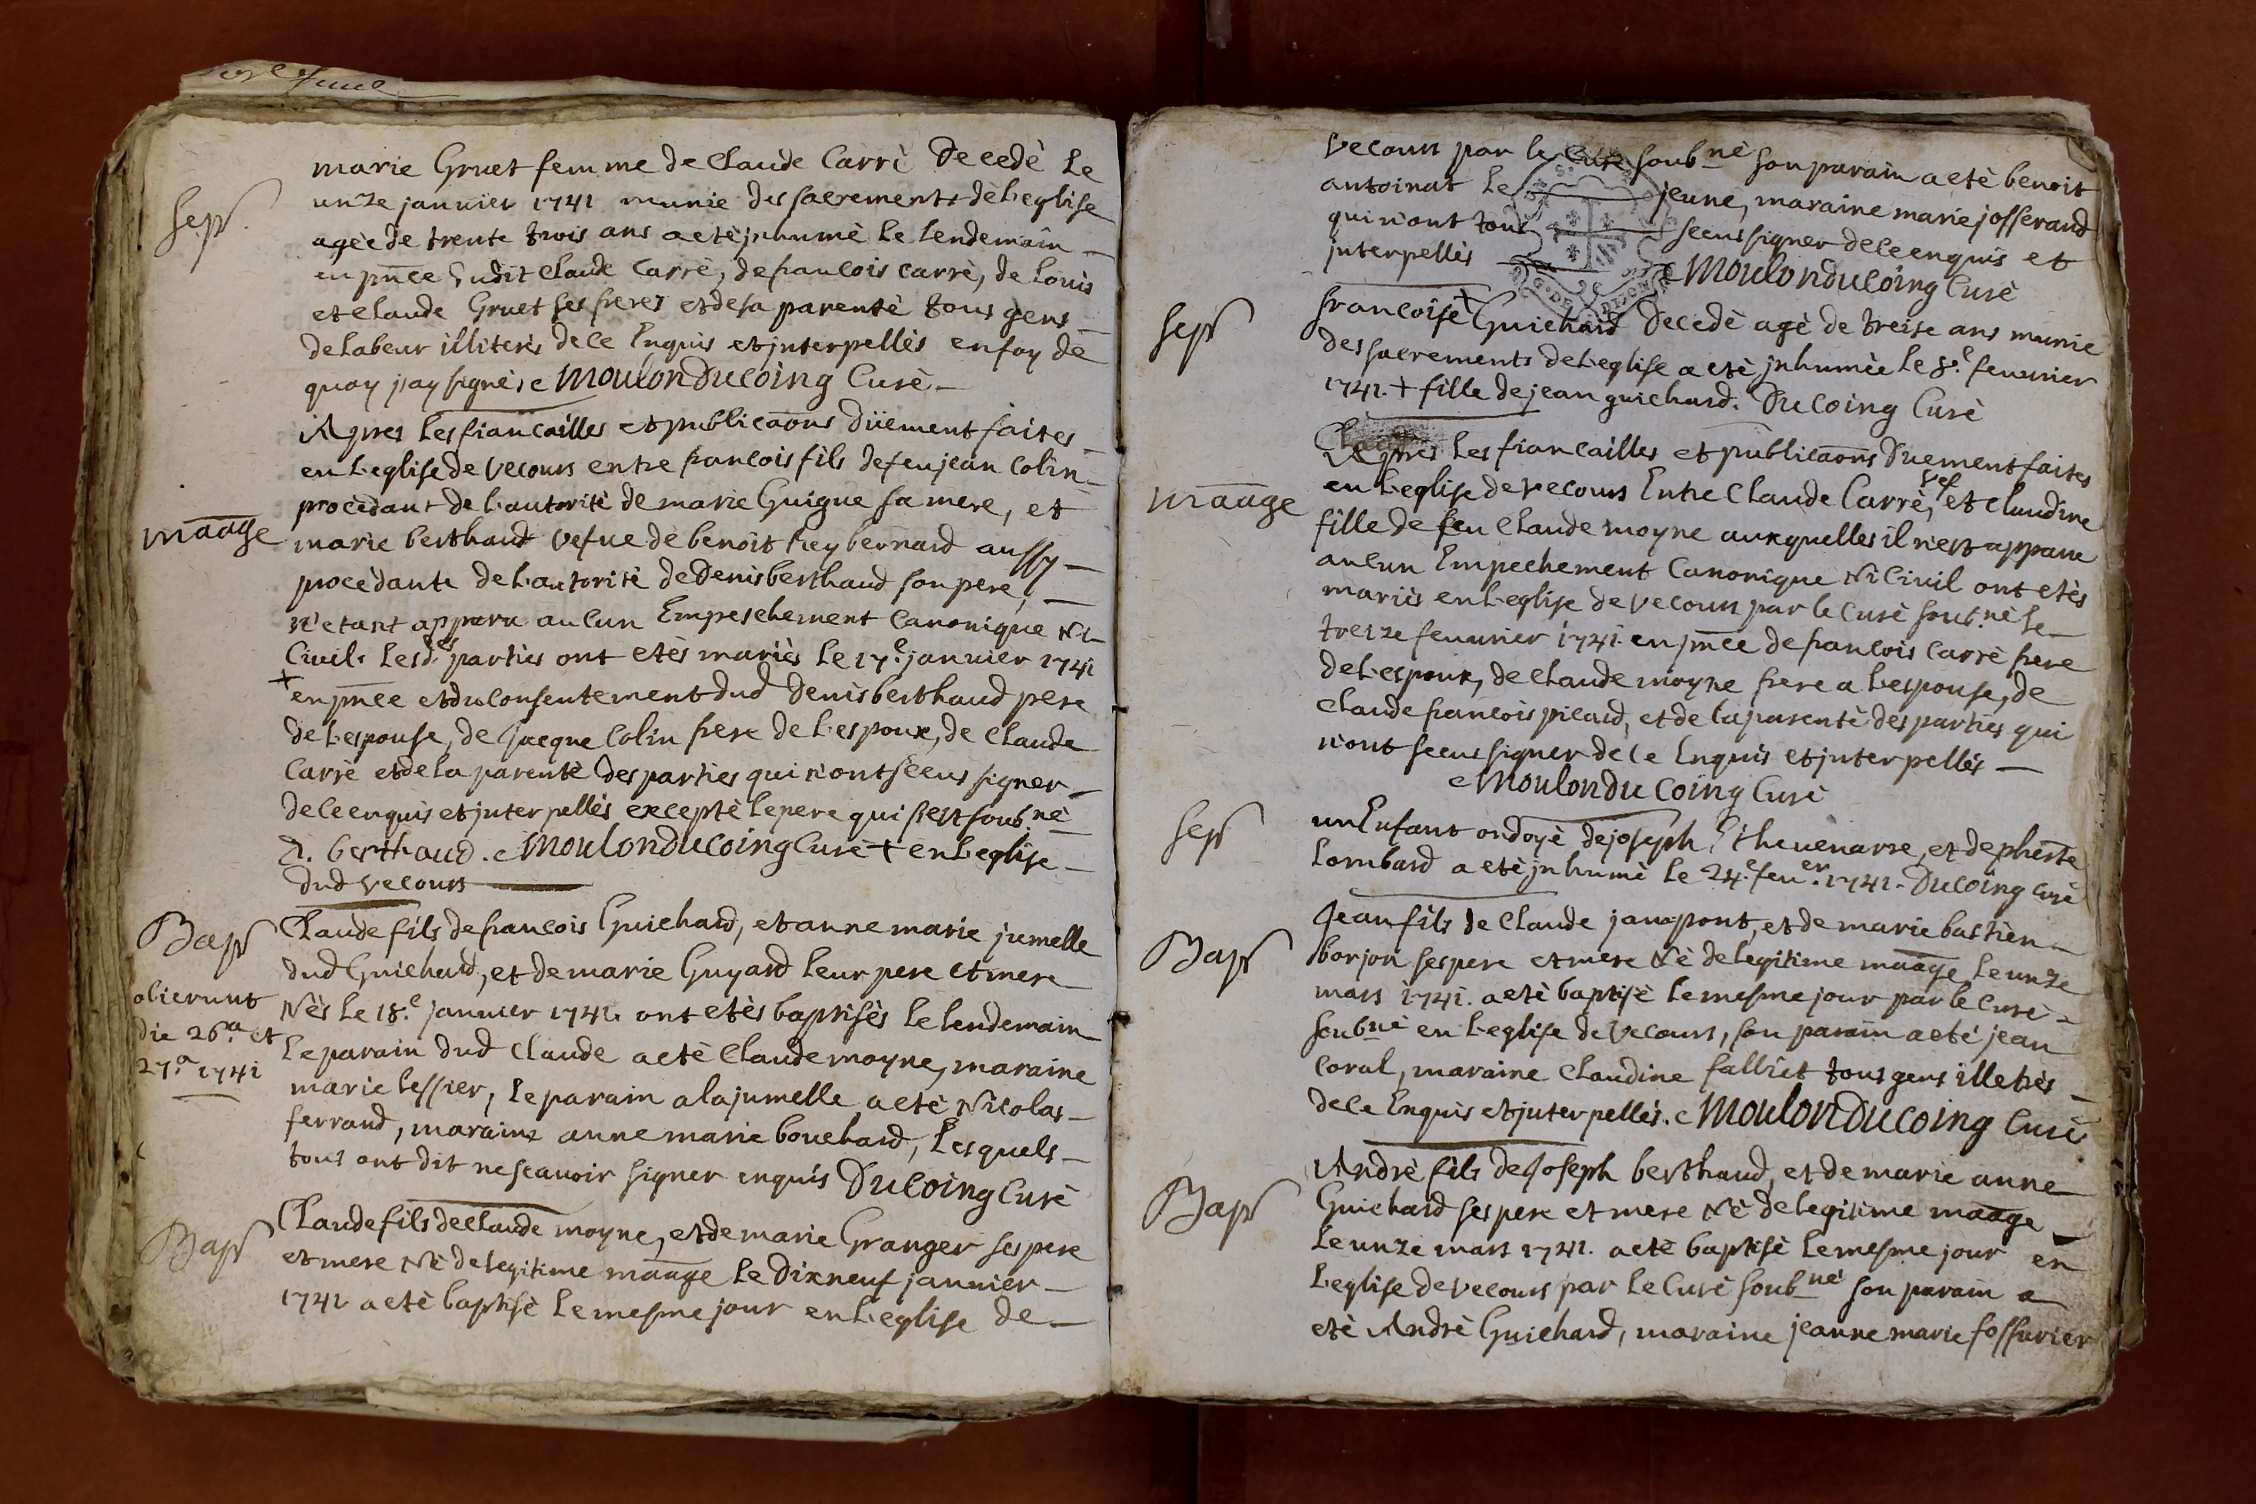 marie Gruet femme de Claude Carré Decedè le
Sep.
unze janvier 1741 munie des sacrements de l'eglise
agèe de trente trois ans a eté jnhumè le lendemain
en pñce dudit Claude Carrè, de francois carrè, de Louis
et Claude Gruet ses freres et de sa parentè tous gens
de labeur illiterès de ce Enquis et jnterpellès en foy de
quoy j'ay signè, Moulon Ducoing Curè
Apres les fiancailles et publicaõns Düement faites
en l'eglise de vecours entre francois fils de feu jean Colin
procedant de l'autorité de marie Guigue sa mere, et
maãge
marie berthaud vefue de benoit frey bernard aussy
procèdante de l'autorité de Denis berthaud son pere,
n'etant apparu aucun Empeschement Canonique Ni
Civil. lesd.es parties ont etès mariès le 17.e janvier 1741
+
en pñce et du consentement dud Denis berthaud pere
de l'espouse, de jacque Colin frere de l'espoux, de Claude
Carrè et de la parentè des parties qui n'ont sceus signer
de ce enquis et jnterpellès exceptè le pere qui s'est soubnè
D. berthaud. Moulon Ducoing Curè + en l'eglise
dud vecours
Bap
Claude fils de francois Guichard, et anne marie jumelle
dud Guichard, et de marie Guyard leur pere et mere
obierunt
Nès le 18.e janvier 1741 ont etès baptisès le lendemain
die 26.a et
le parain dud Claude a etè Claude moyne, maraine
27.a 1741
marie tessier, le parain a la jumelle a etè Nicolas
ferrand, maraine anne marie bouchard, lesquels
tous ont dit ne scavoir signer enquis Ducoing Curè
Bap
Claude fils de Claude moyne, et de marie Granger ses pere
et mere Nè de legitime maãge le Dixneuf janvier
1741 a etè baptisè le mesme jour en l'eglise de
vecours par le Curè soubnè son parain a etè benoit
antoinat le jeune, maraine marie josserand
qui n'ont tous sceus signer de ce enquis et
jnterpellès Moulon Ducoing Curè
Sep
francoise + Guichard Decedè agè de treise ans munie
des sacrements de l'eglise a etè jnhumèe le 8.e feuurier
1741. + fille de jean guichard. Ducoing Curè
Apres les fiancailles et publicaõns Duement faites
maãge
en l'eglise de vecours Entre Claude Carrè, vef et Claudine
fille de feu Claude moyne auxquelles il n'est apparu
aucun Empechement Canonique Ni Civil ont etès
mariès en l'eglise de vecours par le Curè soub.nè le
treize feuurier 1741. en pñce de francois Carrè frere
de l'espoux, de Claude moyne frere a l'espouse, de
Claude francois picard, et de la parentè des parties qui
n'ont sceus signer de ce Enquis et jnterpellès
Moulon Du Coing Curè
Sep
un Enfant ondoyè de joseph Thevenarre, et de phẽrte
Lombard a etè jnhumè le 24.e feu.er 1741. Ducoing curè
Bap
Jean fils de Claude janapont, et de marie bastien
borjon ses pere et mere Nè de legitime maãge le unze
mars 1741. a etè baptisè le mesme jour par le Curè
soubnè en l'eglise de vecours, son parain a etè jean
Coral, maraine Claudine falliet tous gens illetrès
de ce Enquis et jnterpellès. Moulon Ducoing Curè
Bap
Andrè fils de Joseph berthaud, et de marie anne
Guichard ses pere et mere Nè de legitime maãge
le unze mars 1741. a etè baptisè le mesme jour en
l'eglise de vecours par le Curè soubné son parain a
etè Andrè Guichard, maraine jeanne marie fossurier